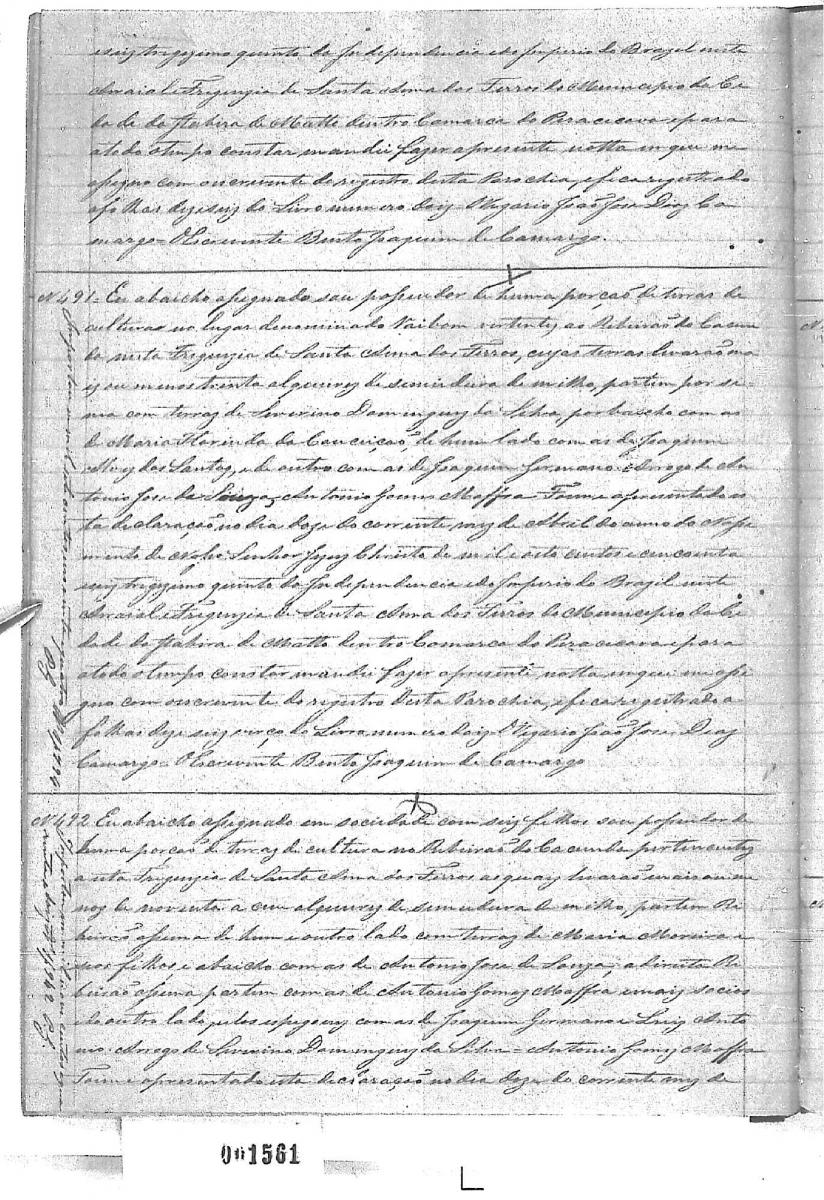 e seiz tregezimo quinto da Independencia e do Imperio do Brazel neste
Arraial e Freguezia de Santa Anna dos Ferros do Municipio da Ci
dade da Itabira de Matto dentro Comarca do Peracicava e para
a todo o tempo constar mandei fazer a presente notta em que me
asegno com o escrevente do registro desta Parochia, e fica registrado
a folhas dezeseiz do Livro numero doiz. O Vigario João José Diaz Ca
margo = O Escrevente Bento Joaquim de Camargo.
N. 491 = Eu abaicho asegnado sou possuidor de huma porção de terras de
culturas no lugar denominado Vaibem vertentez ao Ribeirão do Cacun
da nesta Freguezia de Santa Anna dos Ferros, cujas terras levarão ma
iz ou menos trenta alqueirez de semeadura de milho, partem por si
ma com terraz de Severino Dominguez da Silva, por baicho com as
de Maria Florinda da Conceição, de hum lado com as de Joaquim
Alvez dos Santoz, e de outro com as de Joaquim Germano. Arrogo de An
tonio Jose de Souza, Antonio Gomes Maffra = Foi me apresentado es
ta declaração no dia doze do corrente mez de Abril do anno do Nasse
mento de Nosso Senhor Jezuz Christo de mil e oito centos e cincoenta
e seiz tregezimo quinto da Independencia e do Imperio do Brazel neste
Arraial e Freguezia de Santa Anna dos Ferros do Municipio da Ci
dade da Itabira de Matto dentro Comarca do Peracicava e para
a todo o tempo constar mandei fazer a presente notta em que me asi
gno com o escrevente do registro desta Parochia, e fica registrado a
folhas dezeseiz verço do Livro numero doiz. O Vigario João Jose Diaz
Camargo = O Escrevente Bento Joaquim de Camargo
N. 492 Eu abaicho asegnado em sociedade com seiz filhos sou possuidor de
huma porção de terraz de cultura no Ribeirão do Cacunda pertencentez
a esta Freguezia de Santa Anna dos Ferros as quaiz levarão maiz ou me
noz de noventa a cem alqueirez de semeadura de milho, partem Ri
beirão asima de hum e outro lado com terraz de Maria Moreira e
seos filhos, e abaicho com as de Antonio Jose de Souza, a direita Ri
beirão asima partem com as de Antonio Gomez Maffra e maiz socios
e do outro lado, pelos espegoez com as de Joaquim Germano e Luiz Anto
nio. Arrogo de Severino Dominguez da Silva = Antonio Gomez Maffra
Foi me apresentado esta declaração no dia doze do corrente mez de
001561